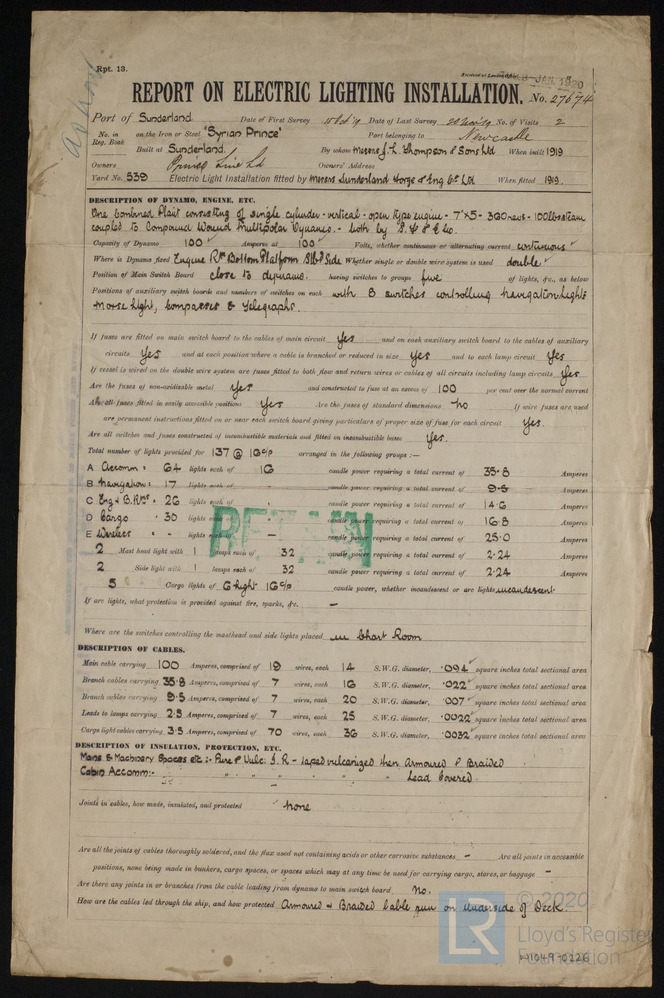 Rpt. 13.
Received at London Office JAN 1920
REPORT ON ELECTRIC LIGHTING INSTALLATION. No. 27674
Port of Sunderland Date of First Survey Date of Last Survey No. of Visits 2
No. in Reg. Book on the Iron or Steel "Syrian Prince" Port belonging to Newcastle
Built at Sunderland By whom Messrs J. L. Thompson & Sons Ltd When built 1919
Owners Prince Line Ld Owners' Address
Yard No. 539 Electric Light Installation fitted by Messrs Sunderland Forge & Eng Co Ltd When fitted 1919.
DESCRIPTION OF DYNAMO, ENGINE, ETC.
One Combined Plant consisting of single cylinder - vertical - open type engine - 7"x5 - 360 revs - 100 lbs steam
coupled to Compound Wound Multipolar Dynamo. - both by S. F. & E Co.
Capacity of Dynamo 100 Amperes at 100 Volts, whether continuous or alternating current continuous
Where is Dynamo fixed Engine Rm Bottom Platform Stbd Side Whether single or double wire system is used double
Position of Main Switch Board close to dynamo. having switches to groups five of lights, &c., as below
Positions of auxiliary switch boards and numbers of switches on each with 8 switches controlling navigation lights
Morse light, Compasses & Telegraphs.
If fuses are fitted on main switch board to the cables of main circuit Yes and on each auxiliary switch board to the cables of auxiliary
circuits Yes and at each position where a cable is branched or reduced in size Yes and to each lamp circuit Yes
If vessel is wired on the double wire system are fuses fitted to both flow and return wires or cables of all circuits including lamp circuits Yes
Are the fuses of non-oxidizable metal Yes and constructed to fuse at an excess of 100 per cent over the normal current
Are all fuses fitted in easily accessible positions Yes Are the fuses of standard dimensions No If wire fuses are used
are permanent instructions fitted on or near each switch board giving particulars of proper size of fuse for each circuit Yes.
Are all switches and fuses constructed of incombustible materials and fitted on incombustible bases Yes.
Total number of lights provided for 137 @ 16 c/p arranged in the following groups :—
A Accomm: 64 lights each of 16 candle power requiring a total current of 35.8 Amperes
B Navigation: 17 lights each of - candle power requiring a total current of 9.5 Amperes
C Eng & B. Rms. 26 lights each of - candle power requiring a total current of 14.6 Amperes
D Cargo 30 lights each of - candle power requiring a total current of 16.8 Amperes
E Wireless - lights each of - candle power requiring a total current of 25.0 Amperes
2 Mast head light with 1 lamps each of 32 candle power requiring a total current of 2.24 Amperes
2 Side light with 1 lamps each of 32 candle power requiring a total current of 2.24 Amperes
5 Cargo lights of 6 light 16 c/p candle power, whether incandescent or arc lights incandescent
RETAIN
If arc lights, what protection is provided against fire, sparks, &c. —
Where are the switches controlling the masthead and side lights placed in Chart Room
DESCRIPTION OF CABLES.
Main cable carrying 100 Amperes, comprised of 19 wires, each 14 S.W.G. diameter, .094 square inches total sectional area
Branch cables carrying 35.8 Amperes, comprised of 7 wires, each 16 S.W.G. diameter, .022 square inches total sectional area
Branch cables carrying 9.5 Amperes, comprised of 7 wires, each 20 S.W.G. diameter, .007 square inches total sectional area
Leads to lamps carrying 2.5 Amperes, comprised of 7 wires, each 25 S.W.G. diameter, .0022 square inches total sectional area
Cargo light cables carrying 3.5 Amperes, comprised of 70 wires, each 36 S.W.G. diameter, .0032 square inches total sectional area
DESCRIPTION OF INSULATION, PROTECTION, ETC.
Mains & Machinery Spaces etc :- Pure & Vulc: I. R - taped vulcanized then Armoured & Braided
Cabin Accomm:- " " " " " Lead Covered.
Joints in cables, how made, insulated, and protected none
Are all the joints of cables thoroughly soldered, and the flux used not containing acids or other corrosive substances - Are all joints in accessible
positions, none being made in bunkers, cargo spaces, or spaces which may at any time be used for carrying cargo, stores, or baggage -
Are there any joints in or branches from the cable leading from dynamo to main switch board No.
How are the cables led through the ship, and how protected Armoured & Braided Cable run on underside of Deck.
© 2020
LR
Lloyd's Register
Foundation
W1049-0226